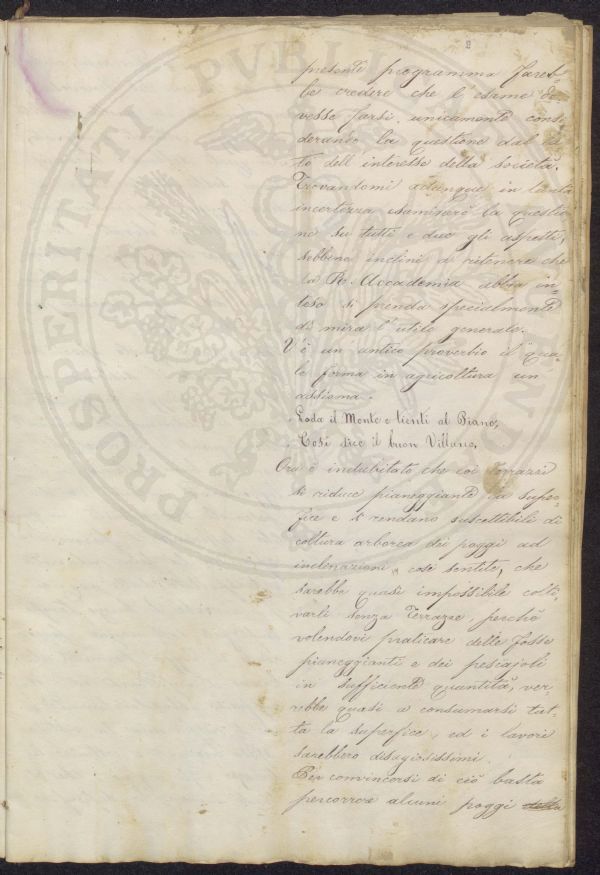 2
presente programma fareb-
be credere che l'esame do-
vesse farsi unicamente consi-
derando la questione dal la-
to dell'interesse della società.
Trovandomi adunque in tanta
incertezza esaminerò la questio-
ne su tutti e due gli aspetti,
sebbene inclini a ritenere che
la R. Accademia abbia in-
teso si prenda specialmente
di mira l'utile generale.
V'è un antico proverbio il qua-
le forma in agricoltura un
assioma.
Loda il Monte e tienti al Piano,
Così dice il buon Villano,
Ora è indubitato che coi terrazzi
si riduce pianeggiante la super-
fice e si rendano suscettibili di
coltura arborea dei poggi ad
inclinazioni così sentite, che
sarebbe quasi impossibile colti-
varli senza terrazze, perchè
volendovi praticare delle fosse
pianeggianti e dei
in sufficiente quantità, ver-
rebbe quasi a consumarsi tut-
ta la superfice, ed i lavori
sarebbero disagiosissimi.
Per convincersi di ciò basta
percorrere alcuni poggi della
PROSPERITATI PVBLICAE